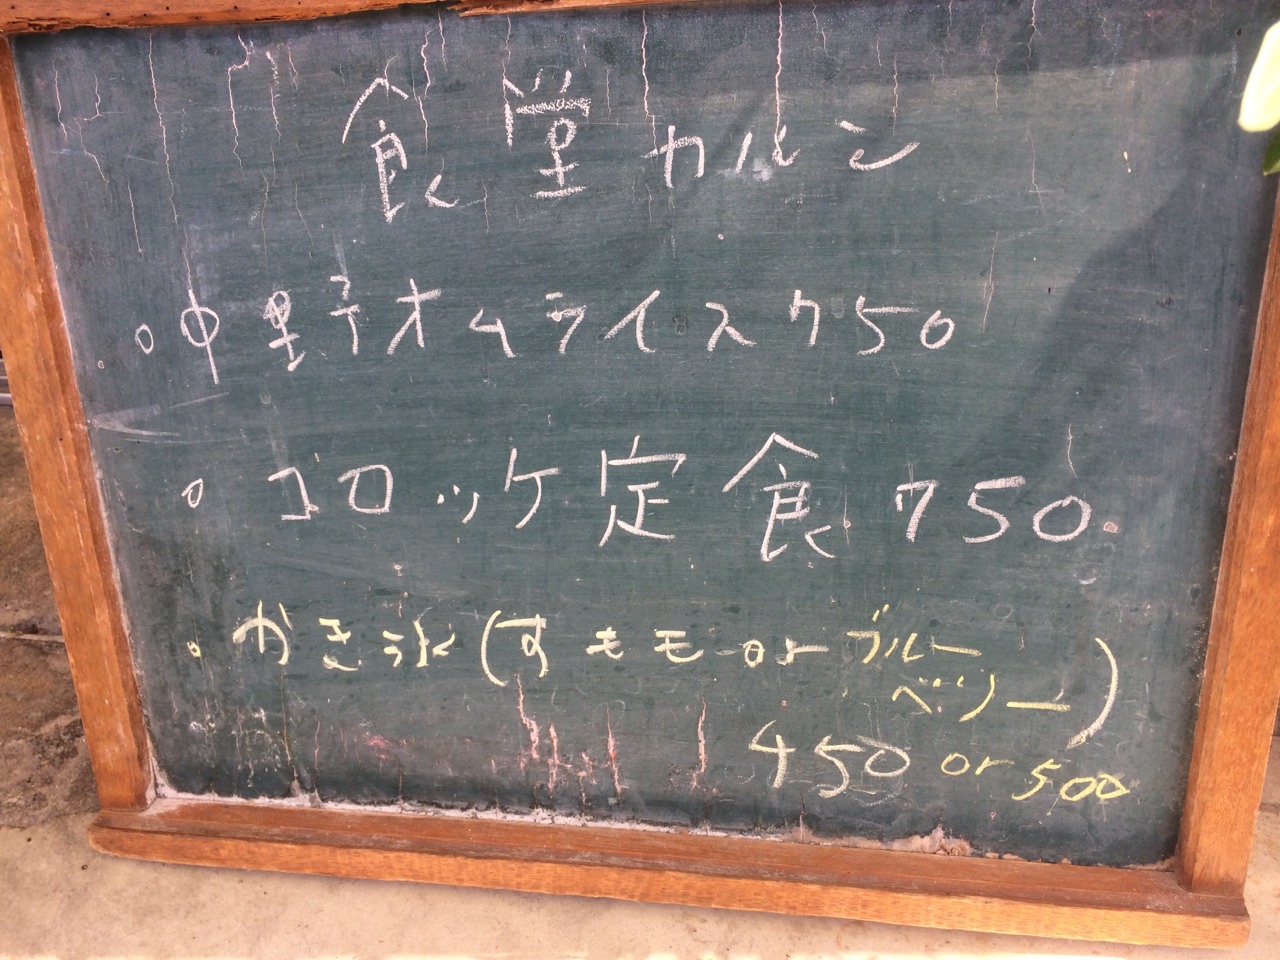 食堂カルン
○中野オムライス750
○コロッケ定食750
○かき氷(すモモorブルー
ベリー)
450 or 500